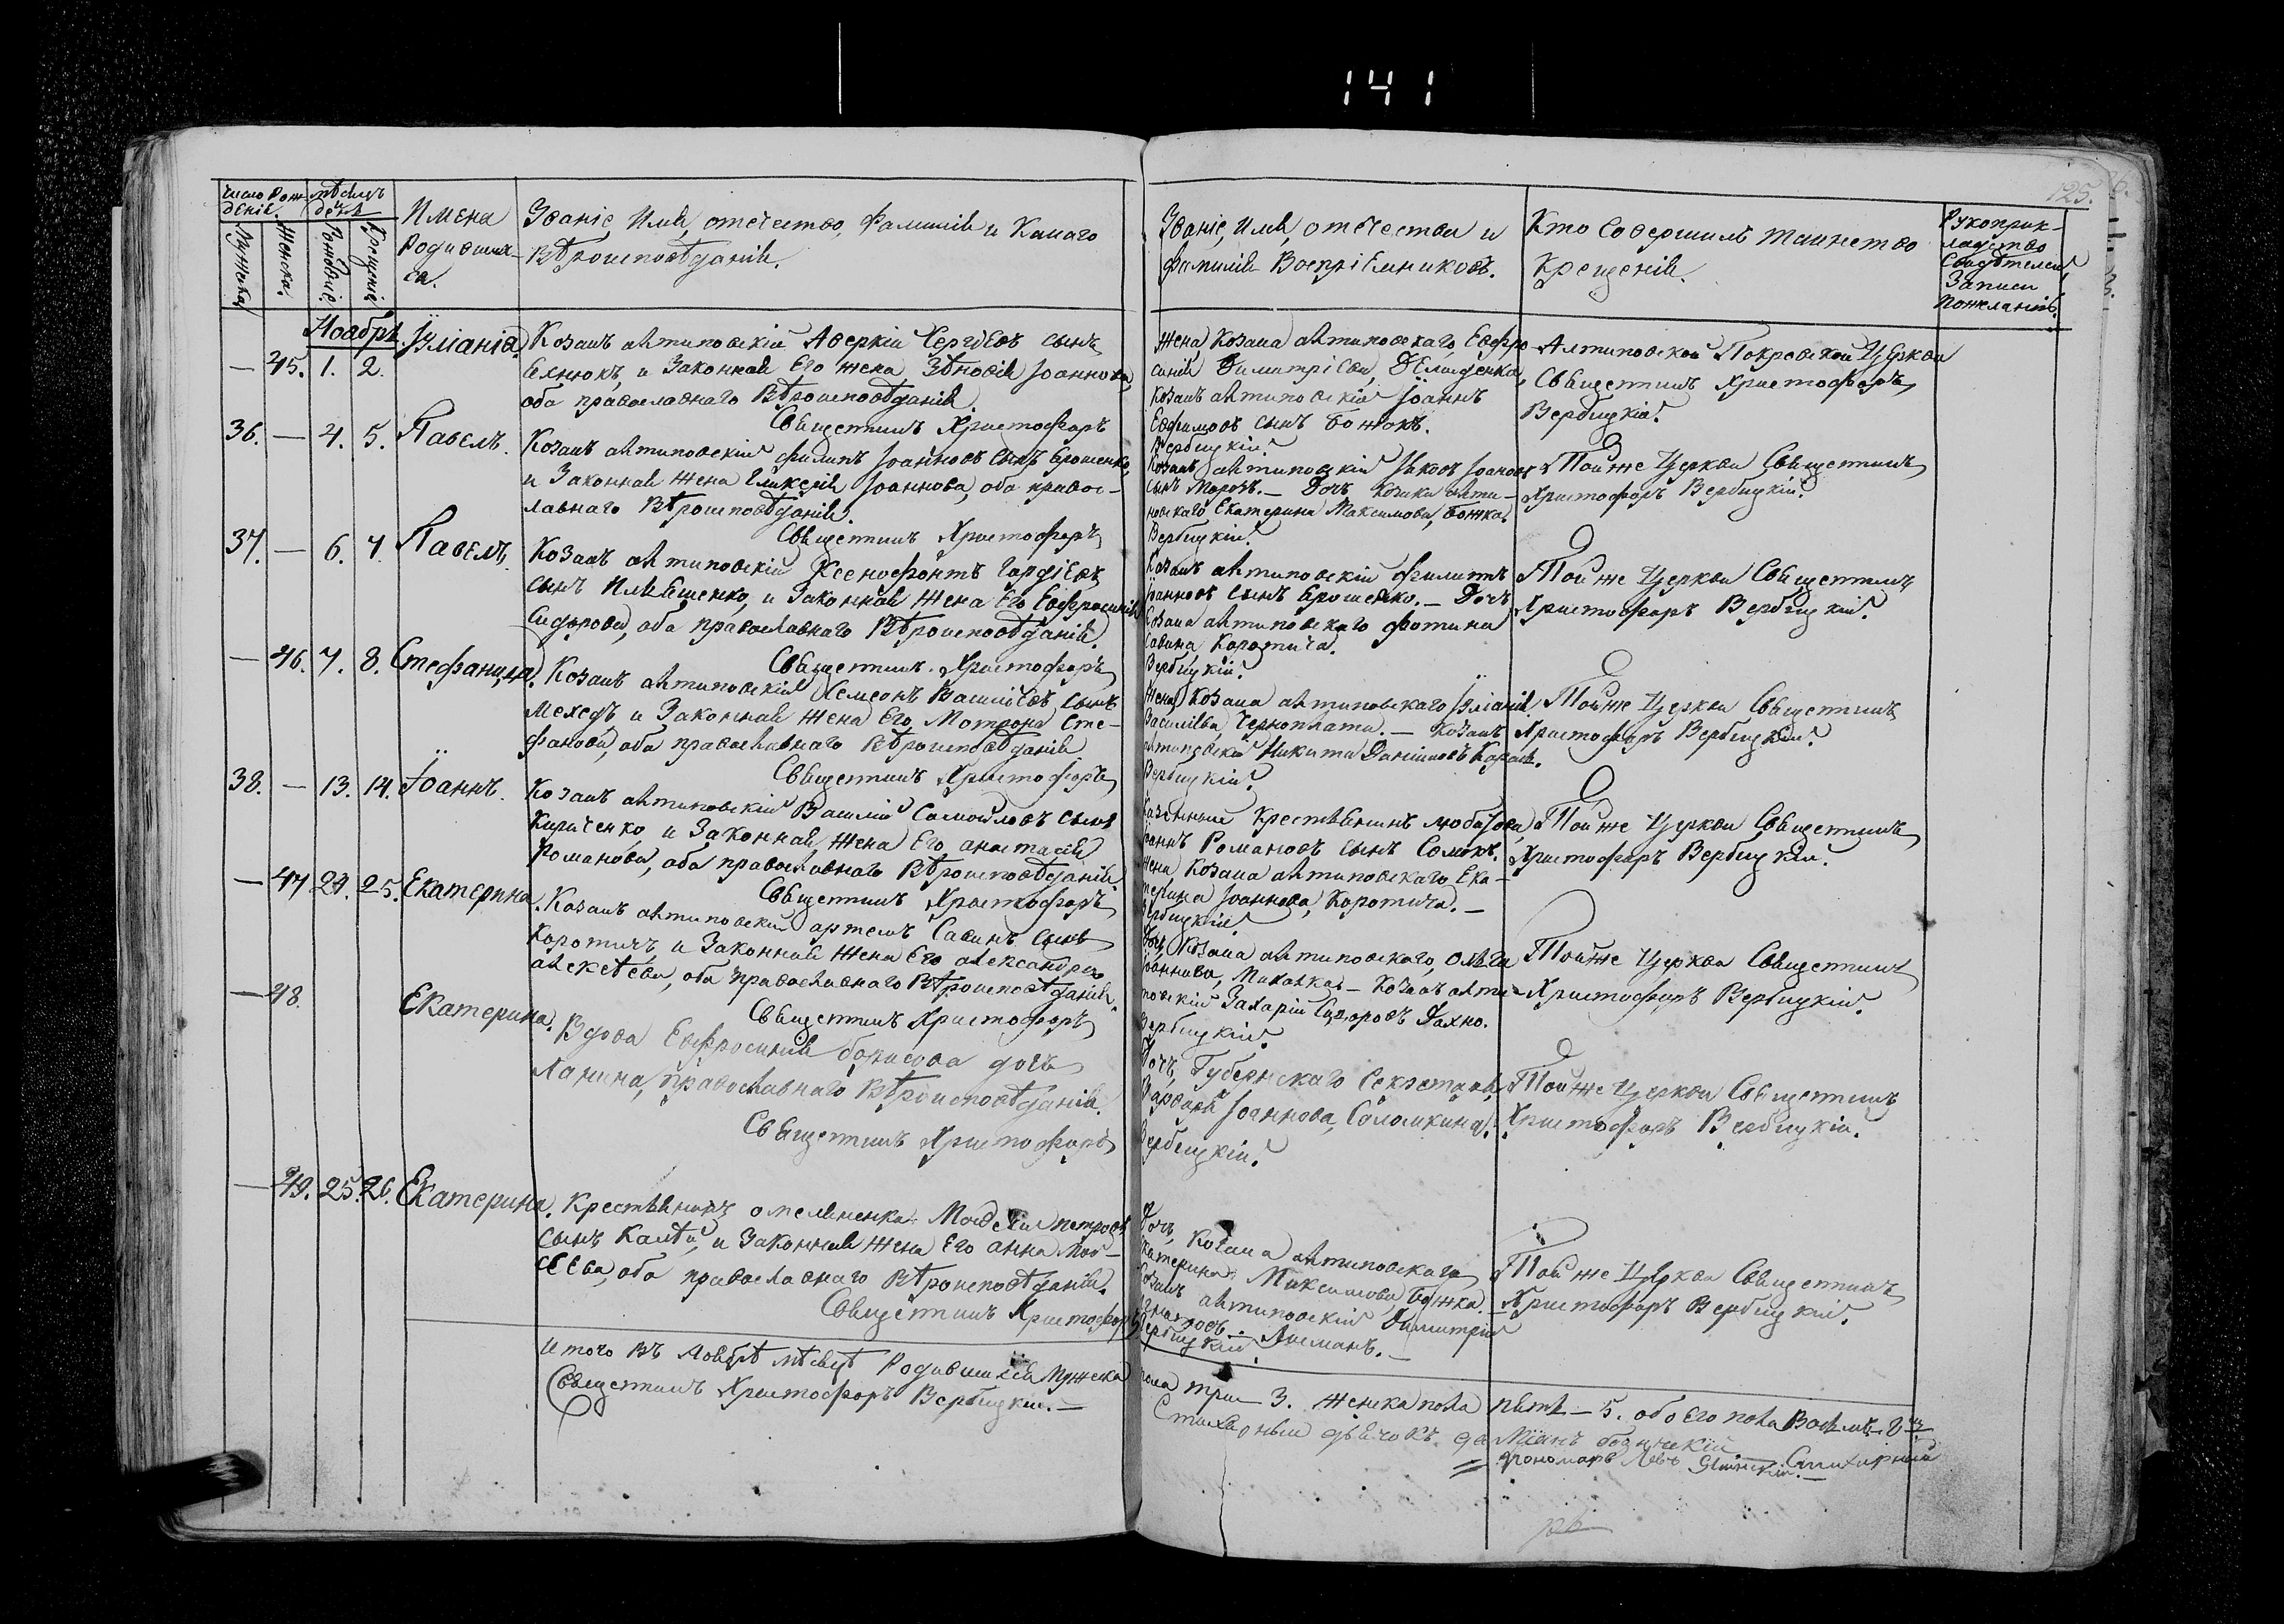 141
125.
Число Рож-
деній.
Мѣсяцъ
и день
Мужска
Женска.
Рожденіе.
Крещеніе
Имена
Родивших-
ся.
Званіе, Имя, отечество, Фамилія и Какаго
Вѣроисповѣданія.
Званіе, Имя, отечества и
фамилія Воспріемниковъ.
Кто Совершилъ таинство
Крещенія.
Рукоприк-
ладство
Свидѣтелей
Записи
Пожеланію.
Ноябрь.
— 45. 1. 2. Іуліанія.
Козакъ антиповскій Аверкій Сергіевъ сынъ
и Законная Его жена Зѣновія Іоаннова,
оба православнаго Вѣроисповѣданія
Священникъ Христофоръ
Жена Козака антиповскаго, Евфро-
синія Димитріева,
Козакъ антиповскій Іоаннъ
Евфимовъ сынъ Божокъ.
Вербицкій.
Антиповской Покровской Церкви
Священникъ Христофоръ
Вербицкій.
36. — 4. 5. Павелъ.
Козакъ антиповскій филипъ Іоанновъ сынъ Ярошенко,
и Законная Жена Гликерія Іоаннова, оба правос-
лавнаго Вѣроисповѣданія.
Священникъ Христофоръ
Козакъ антиповскій Іаковъ Іоановъ
сынъ Морозъ. — Дочь Козака анти-
повскаго Екатерина Максимова, Божка.
Вербицкій.
Той же Церкви Священникъ
Христофоръ Вербицкій.
37. — 6. 7. Павелъ.
Козакъ антиповскій Ксенофонтъ Гордіевъ
сынъ и Законная Жена Его Евфросинія
Сидорова, оба православнаго Вѣроисповѣданія.
Священникъ Христофоръ
Козакъ антиповскій Филиппъ
Іоанновъ сынъ Ярошенко. — Дочь
Козака антиповскаго фотина
Савина, Коротича.
Вербицкій.
Той же Церкви Священникъ
Христофоръ Вербицкій.
— 46. 7. 8. Стефанида.
Козакъ антиповскій Семеонъ Василіевъ сынъ
Мехедъ и Законная Жена Его Мотрона Сте-
фанова, оба православнаго Вѣроисповѣданія
Священникъ Христофоръ
Жена Козака антиповскаго Іуліанія
Василіева, Черноплати. — Козакъ
антиповскій Никита Даніиловъ
Вербицкій.
Той же Церкви Священникъ
Христофоръ Вербицкій.
38. — 13. 14. Іоаннъ.
Козакъ антиповскій Василій Самойловъ сынъ
Кириченко и Законная Жена Его анастасія
Романова, оба православнаго Вѣроисповѣданія
Священникъ Христофоръ
Казенный Крестьянинъ
Іоаннъ Романовъ сынъ Сомокъ.
Жена Козака антиповскаго, Ека-
терина Іоаннова, Коротича. —
Вербицкій.
Той же Церкви Священникъ
Христофоръ Вербицкій.
— 47 24. 25. Екатерина.
Козакъ антиповскій артемъ Савинъ сынъ
Коротичъ, и Законная Жена Его александра
алексѣева, оба православнаго Вѣроисповѣданія.
Священникъ Христофоръ
Дочь Козака антиповскаго, ольга
Іоаннова, — Козакъ анти-
повскій Захарій Сидоровъ Дахно.
Вербицкій.
Той же Церкви Священникъ
Христофоръ Вербицкій.
— 48. Екатерина.
Вдова Евфросинія борисова дочь
Ланина, православнаго Вѣроисповѣданія.
Священникъ Христофоръ
Дочь Губернскаго Секретаря,
Варвара Іоаннова, Соломкина.
Вербицкій.
Той же Церкви Священникъ
Христофоръ Вербицкій.
— 49. 25. 26. Екатерина.
Крестьянинъ омельненка Моѵсей петровъ
сынъ и Законная Жена Его анна Мой-
сеева, оба православнаго Вѣроисповѣданія.
Священникъ Христофоръ
Дочь Козака антиповскаго
Катерина Максимова, Божка. —
Козакъ антиповскій Димитрій
Вербицкій.
Той же Церкви Священникъ
Христофоръ Вербицкій.
Итого Въ Ноябрѣ мѣсяцѣ Родившихся Мужска пола три — 3. Женска пола пять — 5. обоего пола Восемь — 8
Священникъ Христофоръ Вербицкій. —
Стихарный дьячокъ даміанъ
Стихарный
пономарь Левъ